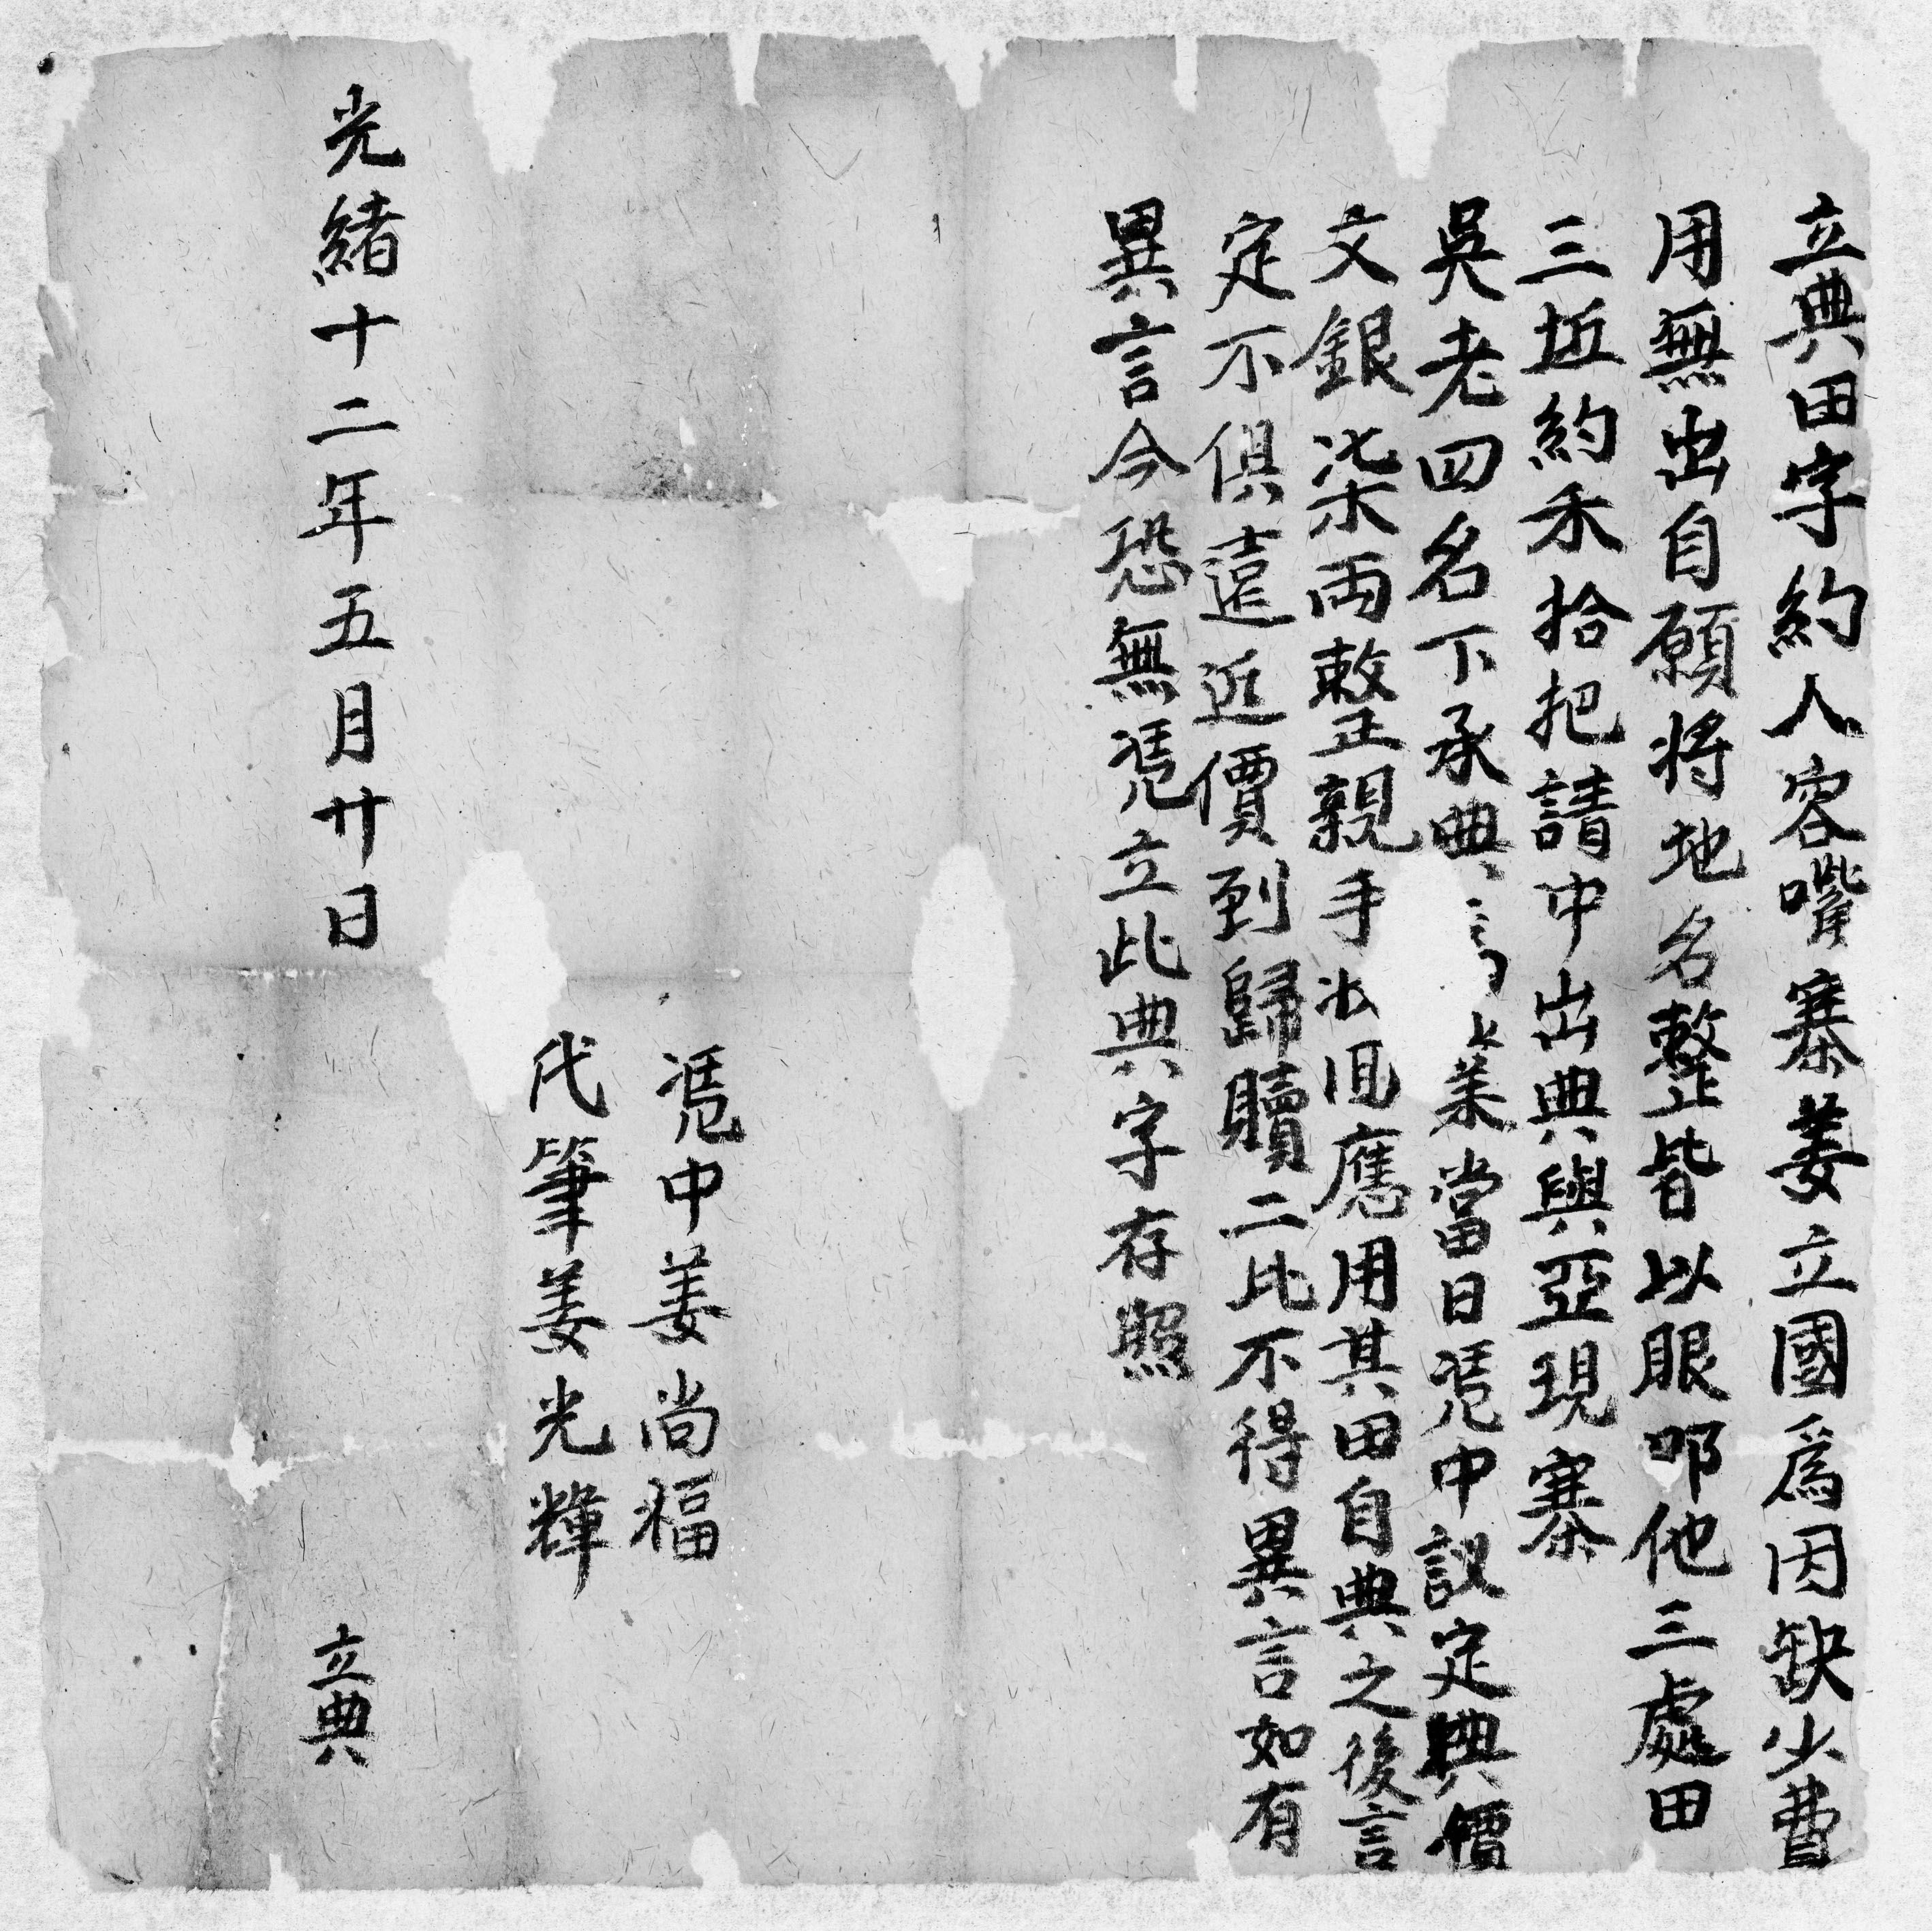 立典田字約人容嘴寨姜立國爲因缺少費
用無出自願將地名整皆以眼叩他三處田
三坵約禾拾把請中出典與亞現寨
吳老四名下承典爲業當日凴中議定典價
文銀柒両整親手收回應用其田自典之後言
定不俱遠近價到歸贖二比不得異言如有
異言今恐無凴立此典字存照
凴中姜尚福
代筆姜光輝
光緒十二年五月廿日 立典